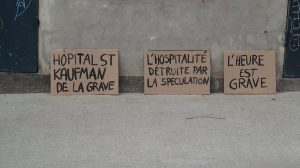 HOPITAL ST
KAUFMAN
DE LA GRAVE
L'HOSPITALITÉ
DÉTRUITE PAR
LA SPÉCULATION
L'HEURE
EST
GRAVE